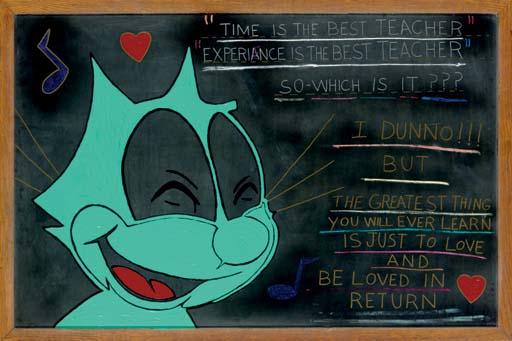 "TIME IS THE BEST TEACHER"
"EXPERIANCE IS THE BEST TEACHER"
SO-WHICH IS IT ???
I DUNNO!!!
BUT
THE GREATEST THING
YOU WILL EVER LEARN
IS JUST TO LOVE
AND
BE LOVED IN
RETURN